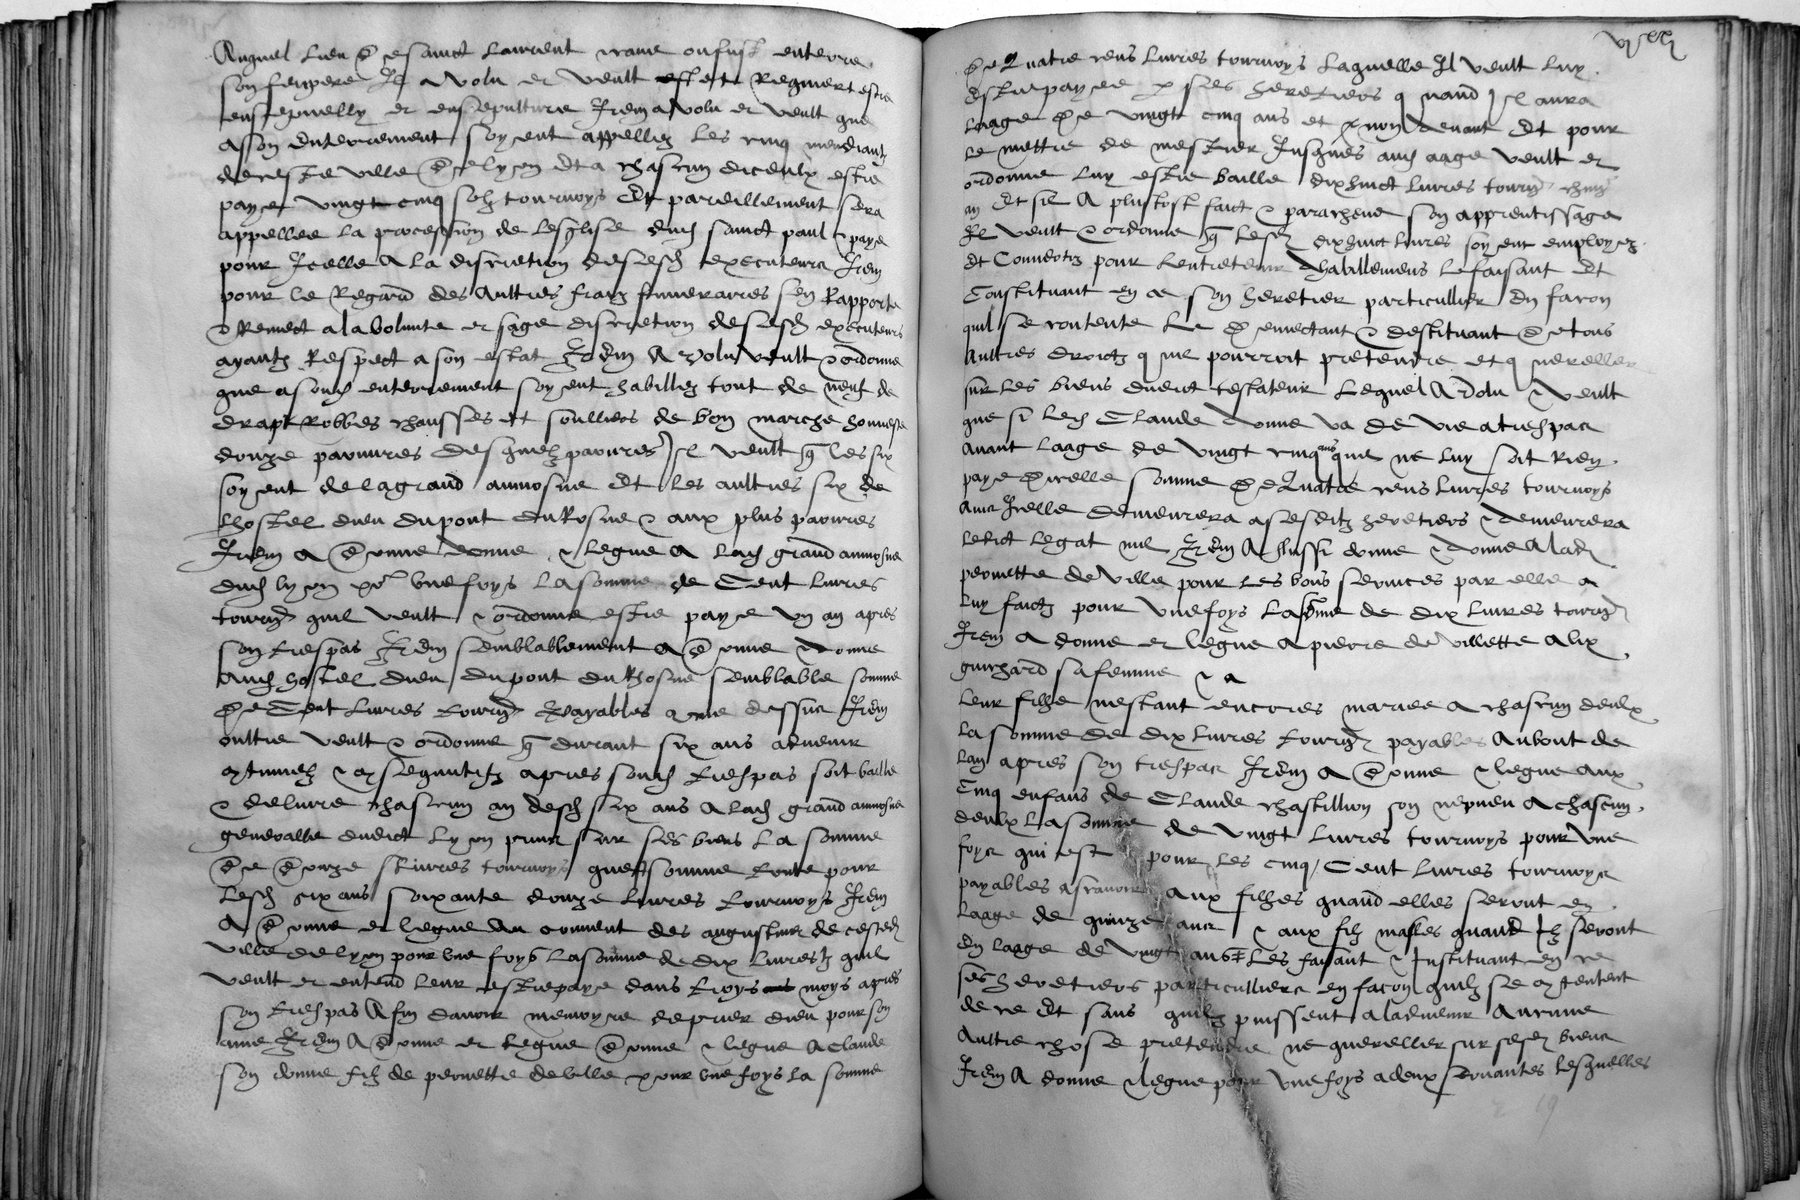 Auquel lieu de sainct Laurent
son feu pere Il a volu et veult Requiert estre
ensepvelly et ensepulture Item a volu et veult que
a son enterrement soyent appellez les cinq mendiantz
de ceste ville de lyon Et a chascun diceulx estre
paye vingt cinq solz tournoys Et pareillement sera
appellee la procession de lesglise dud sainct paul & paye
pour Icelle A la discretion de sesd executeurs Item
pour le Regard des Aultres fraiz funeraires sen Rapporte
& Remect a la volunte et sage discretion de sesd executeurs
ayantz Respect a son estat Item A volu veult & ordonne
que a sond enterrement soyent habillez tout de neuf de
drapt Robbes chausses et soulliers de bon marche honneste
douze pauvres desquelz pauvres Il veult q les six
soyent de la grand aumosne Et les aultres six de
lhostel dieu du pont du Rosne & aux plus pauvres
Item a donne donne & legue A lad grand aumosne
dud lyon po.r une foys la somme de Cent livres
tourn. quil veult & ordonne estre paye ung an apres
son trespas Item semblablement a donne & donne
Aud hostel dieu du pont du Rhosne semblable somme
de Cent livres tourn. payables come dessus Item
oultre veult & ordonne q durant six ans advenir
continuelz & consequutifz apres sond trespas soit baille
& delivre chascun an desd six ans A lad grand aumosne
generalle dudict lyon prins sur ses biens la somme
de douze livres tournoys que somme toute pour
lesd six ans soixante douze livres tournoys Item
A donne et legue Au couvent des augustins de cested
ville de lyon pour une foys la somme de dix livres tz quil
veult et entend leur estre paye dans troys moys apres
son trespas Afin davoir memoyre de prier dieu pour son
ame Item A donne et legue donne & legue A Claude
son donne filz de pernette de ville pour une foys la somme
de Quatre cens livres tournoys laquelle Il veult luy
estre payee p ses heretiers quand Il aura
laage de vingt cinq ans et non devant Et pour
le mettre de mestier Jusques aud aage veult et
ordonne luy estre baille dixhuict livres tourn. chun
an Et sil A plustost faict & paracheve son apprentissage
Il veult & ordonne q lesd dixhuict livres soyent employez
Et Convertiz pour lentretenir dhabillemens le faisant Et
Constituant en ce son heretier particullier En facon
quil se contente le demectant & destituant de tous
Aultres droictz q me pourroit pretendre et quereller
sur les biens dudict testateur Lequel A volu & veult
que si led Claude donne va de vie a trespas
avant laage de vingt cinq ans que ne luy soit Rien
paye dicelle somme de Quatre cens livres tournoys
Ains Icelle demeurera a sesditz heretiers & demeurera
ledict legat nul Item A Aussi donne & donne A lad
pernette de ville pour les bons services par elle a
luy faictz pour une foys la somme de dix livres tourn.
Item a donne et legue A pierre de villette alix
guichard sa femme & a
leur fille nestant encores mariee a chascun deulx
la somme de dix livres tourn. payables Au bout de
lan apres son trespas Item A donne & legue aux
Cinq enfans de Claude chastillion son nepveu A chascun
deulx la somme de vingt livres tournoys pour une
foys qui est pour les cinq Cent livres tournoys
payables ascavoir aux filles quand elles seront en
laage de quinze ans & aux filz masles quand Ilz seront
En laage de vingt ans Les faisant & Instituant en ce
ses heretiers particulliers en facon quilz se contentent
de ce Et sans quilz puissent a ladvenir Aucune
Aultre chose pretendre ne quereller sur sesd biens
Item A donne & legue pour une foys a deux servantes lesquelles